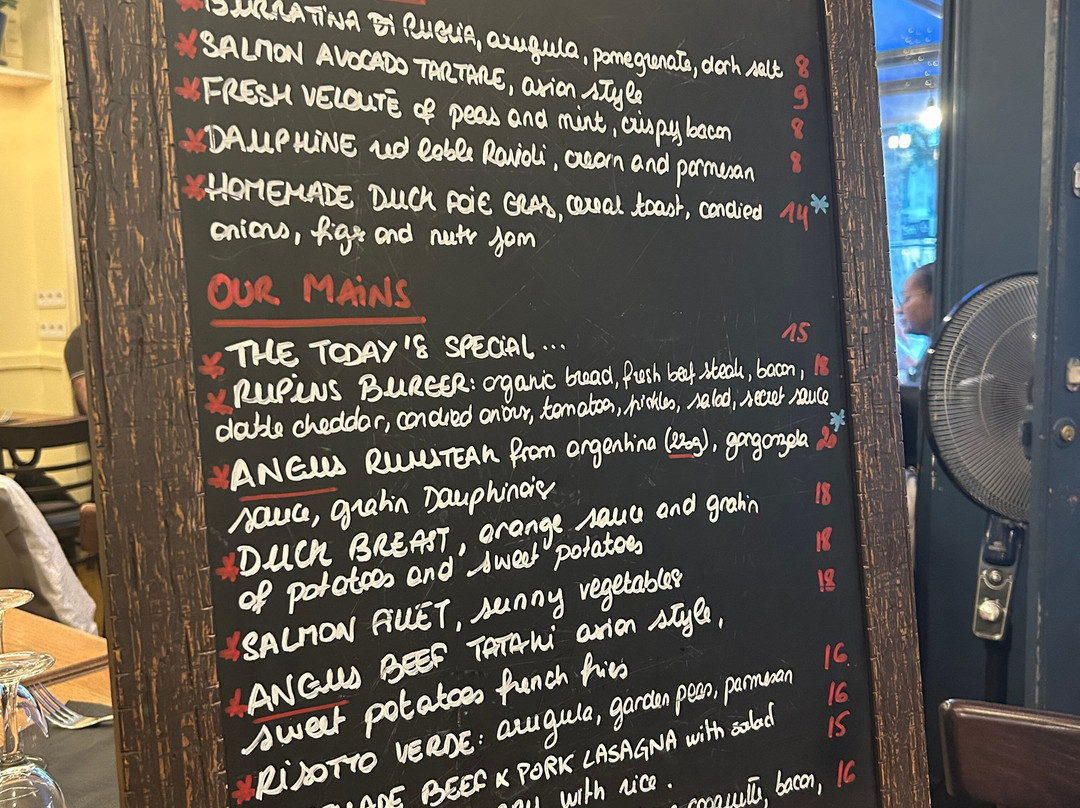 BURRATINA DI PUGLIA, arugula, pomegrenate, dark salt 8
SALMON AVOCADO TARTARE, asian style 9
FRESH VELOUTÉ of peas and mint, crispy bacon 8
DAUPHINE red lable Ravioli, cream and parmesan 8
HOMEMADE DUCK FOIE GRAS, cereal toast, candied 14*
onions, figs and nuts jam
OUR MAINS
THE TODAY'S SPECIAL... 15
RUPINS BURGER: organic bread, fresh beef steak, bacon, 18
double cheddar, candied onions, tomatoes, pickles, salad, secret sauce
ANGUS RUMSTEAK from argentina (220g), gorgonzola 20*
sauce, gratin Dauphinois
DUCK BREAST, orange sauce and gratin 18
of potatoes and sweet potatoes
SALMON FILLET, sunny vegetables 18
ANGUS BEEF TATAKI asian style, 18
sweet potatoes french fries
RISOTTO VERDE: arugula, garden peas, parmesan 16
BEEF & PORK LASAGNA with salad 16
with rice. 15
bacon, 16